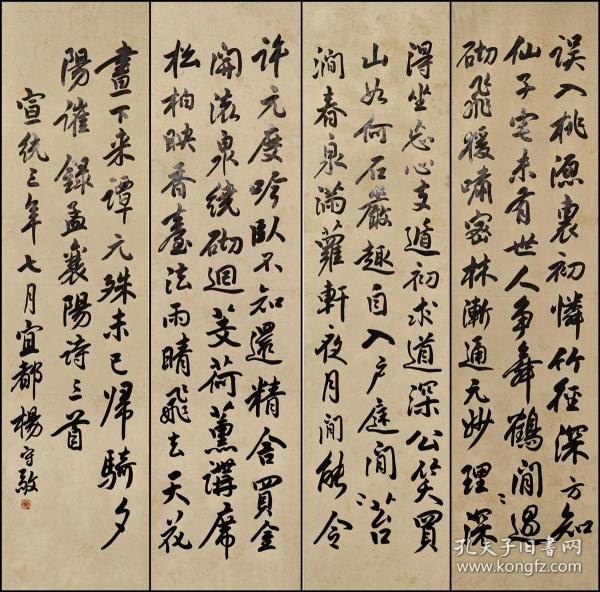 误入桃源裏初憐竹徑深方知
仙子宅未有世人尋舞鶴閒過
砌飛猨嘯密林漸通元妙理深
得坐忘心支遁初求道深公笑買
山如何石巖趣自入户庭間苔
澗春泉滿蘿軒夜月閒能令
许元度吟臥不知還精舍買金
開流泉繞砌迴芰荷薰講席
松柏映香臺法雨晴飛去天花
晝下来譚元殊未已歸騎夕
陽催録孟襄陽詩三首
宣統三年七月宜都楊守敬
孔夫子旧书网
www.kongfz.com